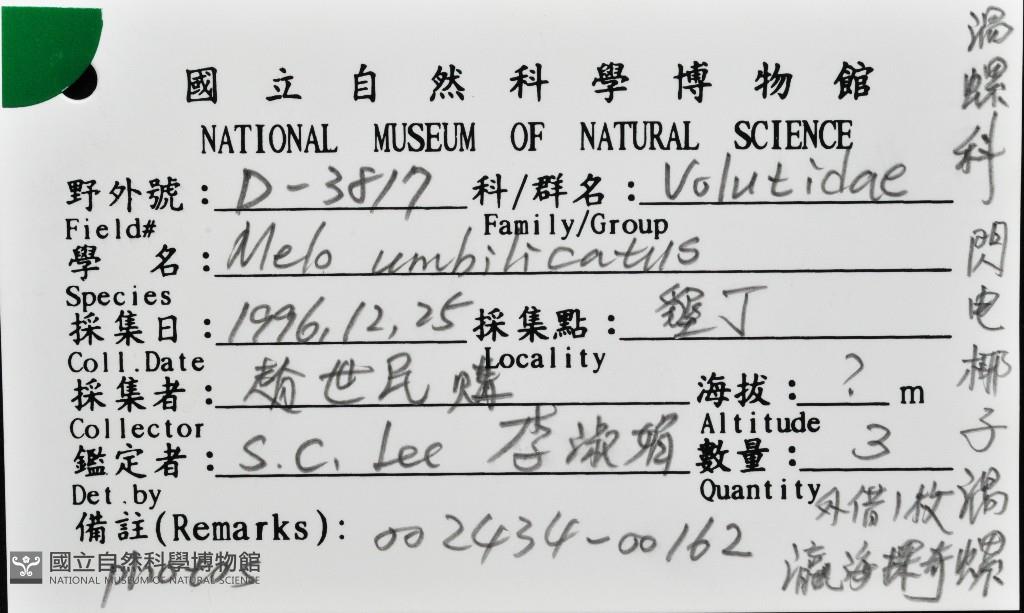 國立自然科學博物館
NATIONAL MUSEUM OF NATURAL SCIENCE
野外號: D-3817 科/群名: Volutidae
Field# Family/Group
學名: Melo umbilicatus
Species
採集日: 1996,12,25 採集點: 墾丁
Coll.Date Locality
採集者: 趙世民 購 海拔: ? m
Collector Altitude
鑑定者: S.C. Lee 李淑娟 數量: 3
Det.by Quantity
外借1枚
備註(Remarks): 002434-00162
瀛海探奇
photos
國立自然科學博物館
NATIONAL MUSEUM OF NATURAL SCIENCE
渦螺科 閃电椰子渦螺